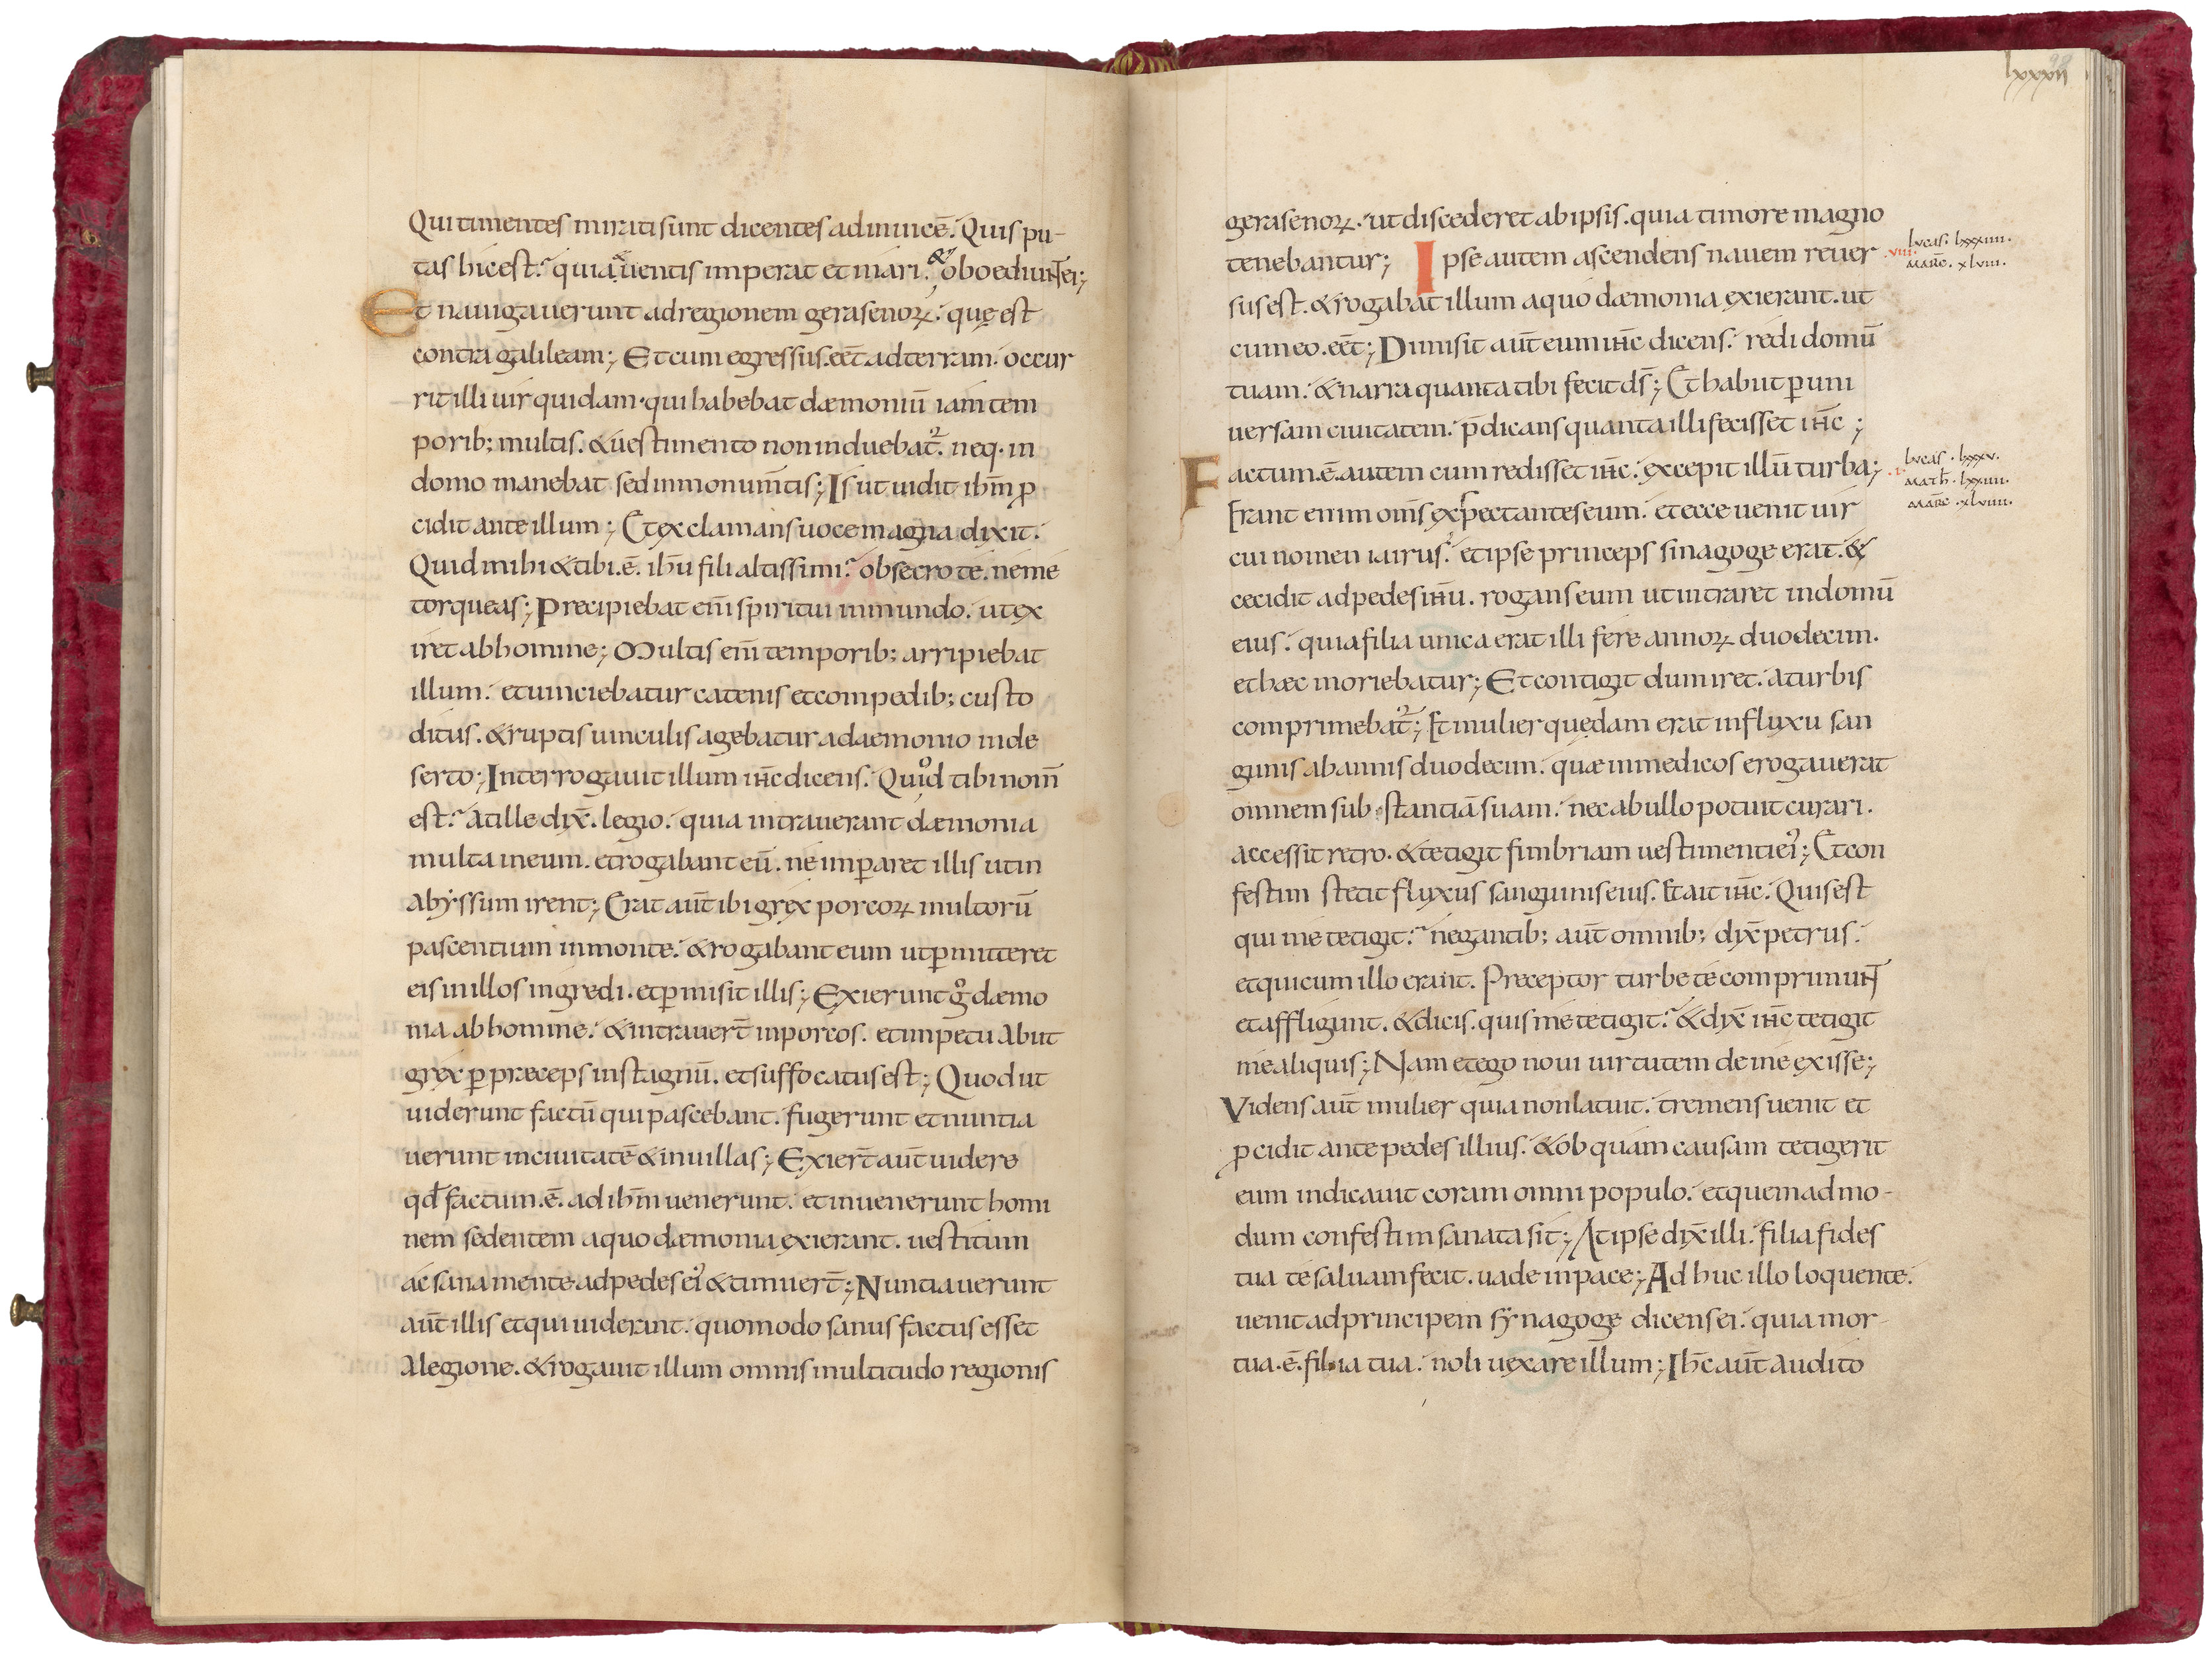 Qui timentes mirati sunt dicentes adinuicē. Quis pu-
tas hic est? quia & uentis imperat et mari. & oboediunt ei;
Et nauigauerunt ad regionem gerasenoꝝ. quę est
contra galileam; Et cum egressus. eēt ad terram. occur
rit illi uir quidam. qui habebat dæmoniū iam tem
porib; multis. & uestimento non induebat᷑. neq. in
domo manebat sed in monum̄tis; Is ut uidit ihm̄ ꝓ
cidit ante illum; Et exclamans uoce magna dixit.
Quid mihi & tibi. ē. ihū fili altissimi? obsecro te. ne me
torqueas; Precipiebat em̄ spiritui inmundo. ut ex
iret ab homine; Multis em̄ temporib; arripiebat
illum. et uinciebatur catenis et compedib; custo
ditus. & ruptis uinculis agebatur a daemonio in de
serto; Interrogauit illum ihc̄ dicens. Quod tibi nom̄
est? At ille dix̄. legio. quia intrauerant dæmonia
multa in eum. et rogabant eū. ne imꝑaret illis ut in
abyssum irent; Erat aut̄ ibi grex porcoꝝ multorū
pascentium in monte. & rogabant eum ut ꝑmitteret
eis in illos ingredi. et ꝑmisit illis; Exierunt gͦ dæmo
nia ab homine. & intrauert̄ in porcos. et impetu abiit
grex ꝑ preceps in stagnū. et suffocatus est; Quod ut
uiderunt factū qui pascebant. fugerunt et nuntia
uerunt in ciuitatē & in uillas; Exiert̄ aut̄ uidere
qd̄ factum. ē. ad ihm̄ uenerunt. et inuenerunt homi
nem sedentem a quo dæmonia exierant. uestitum
ac sana mente ad pedes ei᾽ & timuert̄; Nuntiauerunt
aut̄ illis et qui uiderant. quomodo sanus factus esset
a legione. & rogauit illum omnis multitudo regionis
lxxxii
gerasenoꝝ. ut discederet ab ipsis. quia timore magno
tenebantur; Ipse autem ascendens nauem reuer
.viii.
lucas. lxxxiiii.
marc̄. xlviii.
sus est. & rogabat illum a quo dæmonia exierant. ut
cum eo. eēt; Dimisit aut̄ eum ihc̄ dicens. redi domū
tuam. & narra quanta tibi fecit ds̄; Et habiit ꝑ uni
uersam ciuitatem. p̄dicans quanta illi fecisset ihc̄;
Factum. ē. autem cum redisset ihc̄. excepit illū turba;
lucas. lxxxv.
math̄. lxxiiii.
marc̄. xlviiii.
Erant enim om̄s expectantes eum. et ecce uenit uir
cui nomen iairus. et ipse princeps sinagoge erat. &
cecidit ad pedes ihū. rogans eum ut intraret in domū
eius. quia filia unica erat illi fere annoꝝ duodecim.
et hæc moriebatur; Et contigit dum iret. a turbis
comprimebat᷑; Et mulier quędam erat in fluxu san
guinis ab annis duodecim. quæ in medicos erogauerat
omnem substantiā suam. nec ab ullo potuit curari.
accessit retro. & tetigit fimbriam uestimenti ei᾽; Et con
festim stetit fluxus sanguinis eius. Et ait ihc̄. Quis est
qui me tetigit? negantib; aut̄ omnib; dix̄ petrus.
et qui cum illo erant. Preceptor turbe te comprimunt
et affligunt. & dicis. quis me tetigit? & dix̄ ihc̄ tetigit
me aliquis; Nam et ego noui uirtutem de me exisse;
Videns aut̄ mulier quia non latuit. tremens uenit et
ꝓcidit ante pedes illius. & ob quam causam tetigerit
eum indicauit coram omni populo. et quemadmo-
dum confestim sanata sit; At ipse dix̄ illi. filia fides
tua te saluam fecit. uade in pace; Ad huc illo loquente.
uenit ad principem synagoge dicens ei. quia mor-
tua. ē. filia tua. noli uexare illum; Ihc̄ aut̄ audito